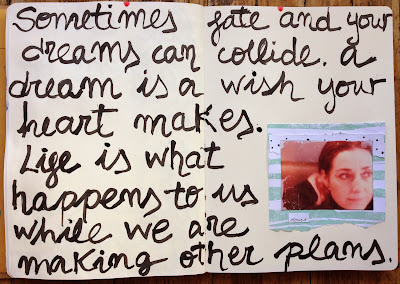 Sometimes fate and your
dreams can collide. a
dream is a wish your
heart makes.
Life is what
happens to us
while we are
making other plans.